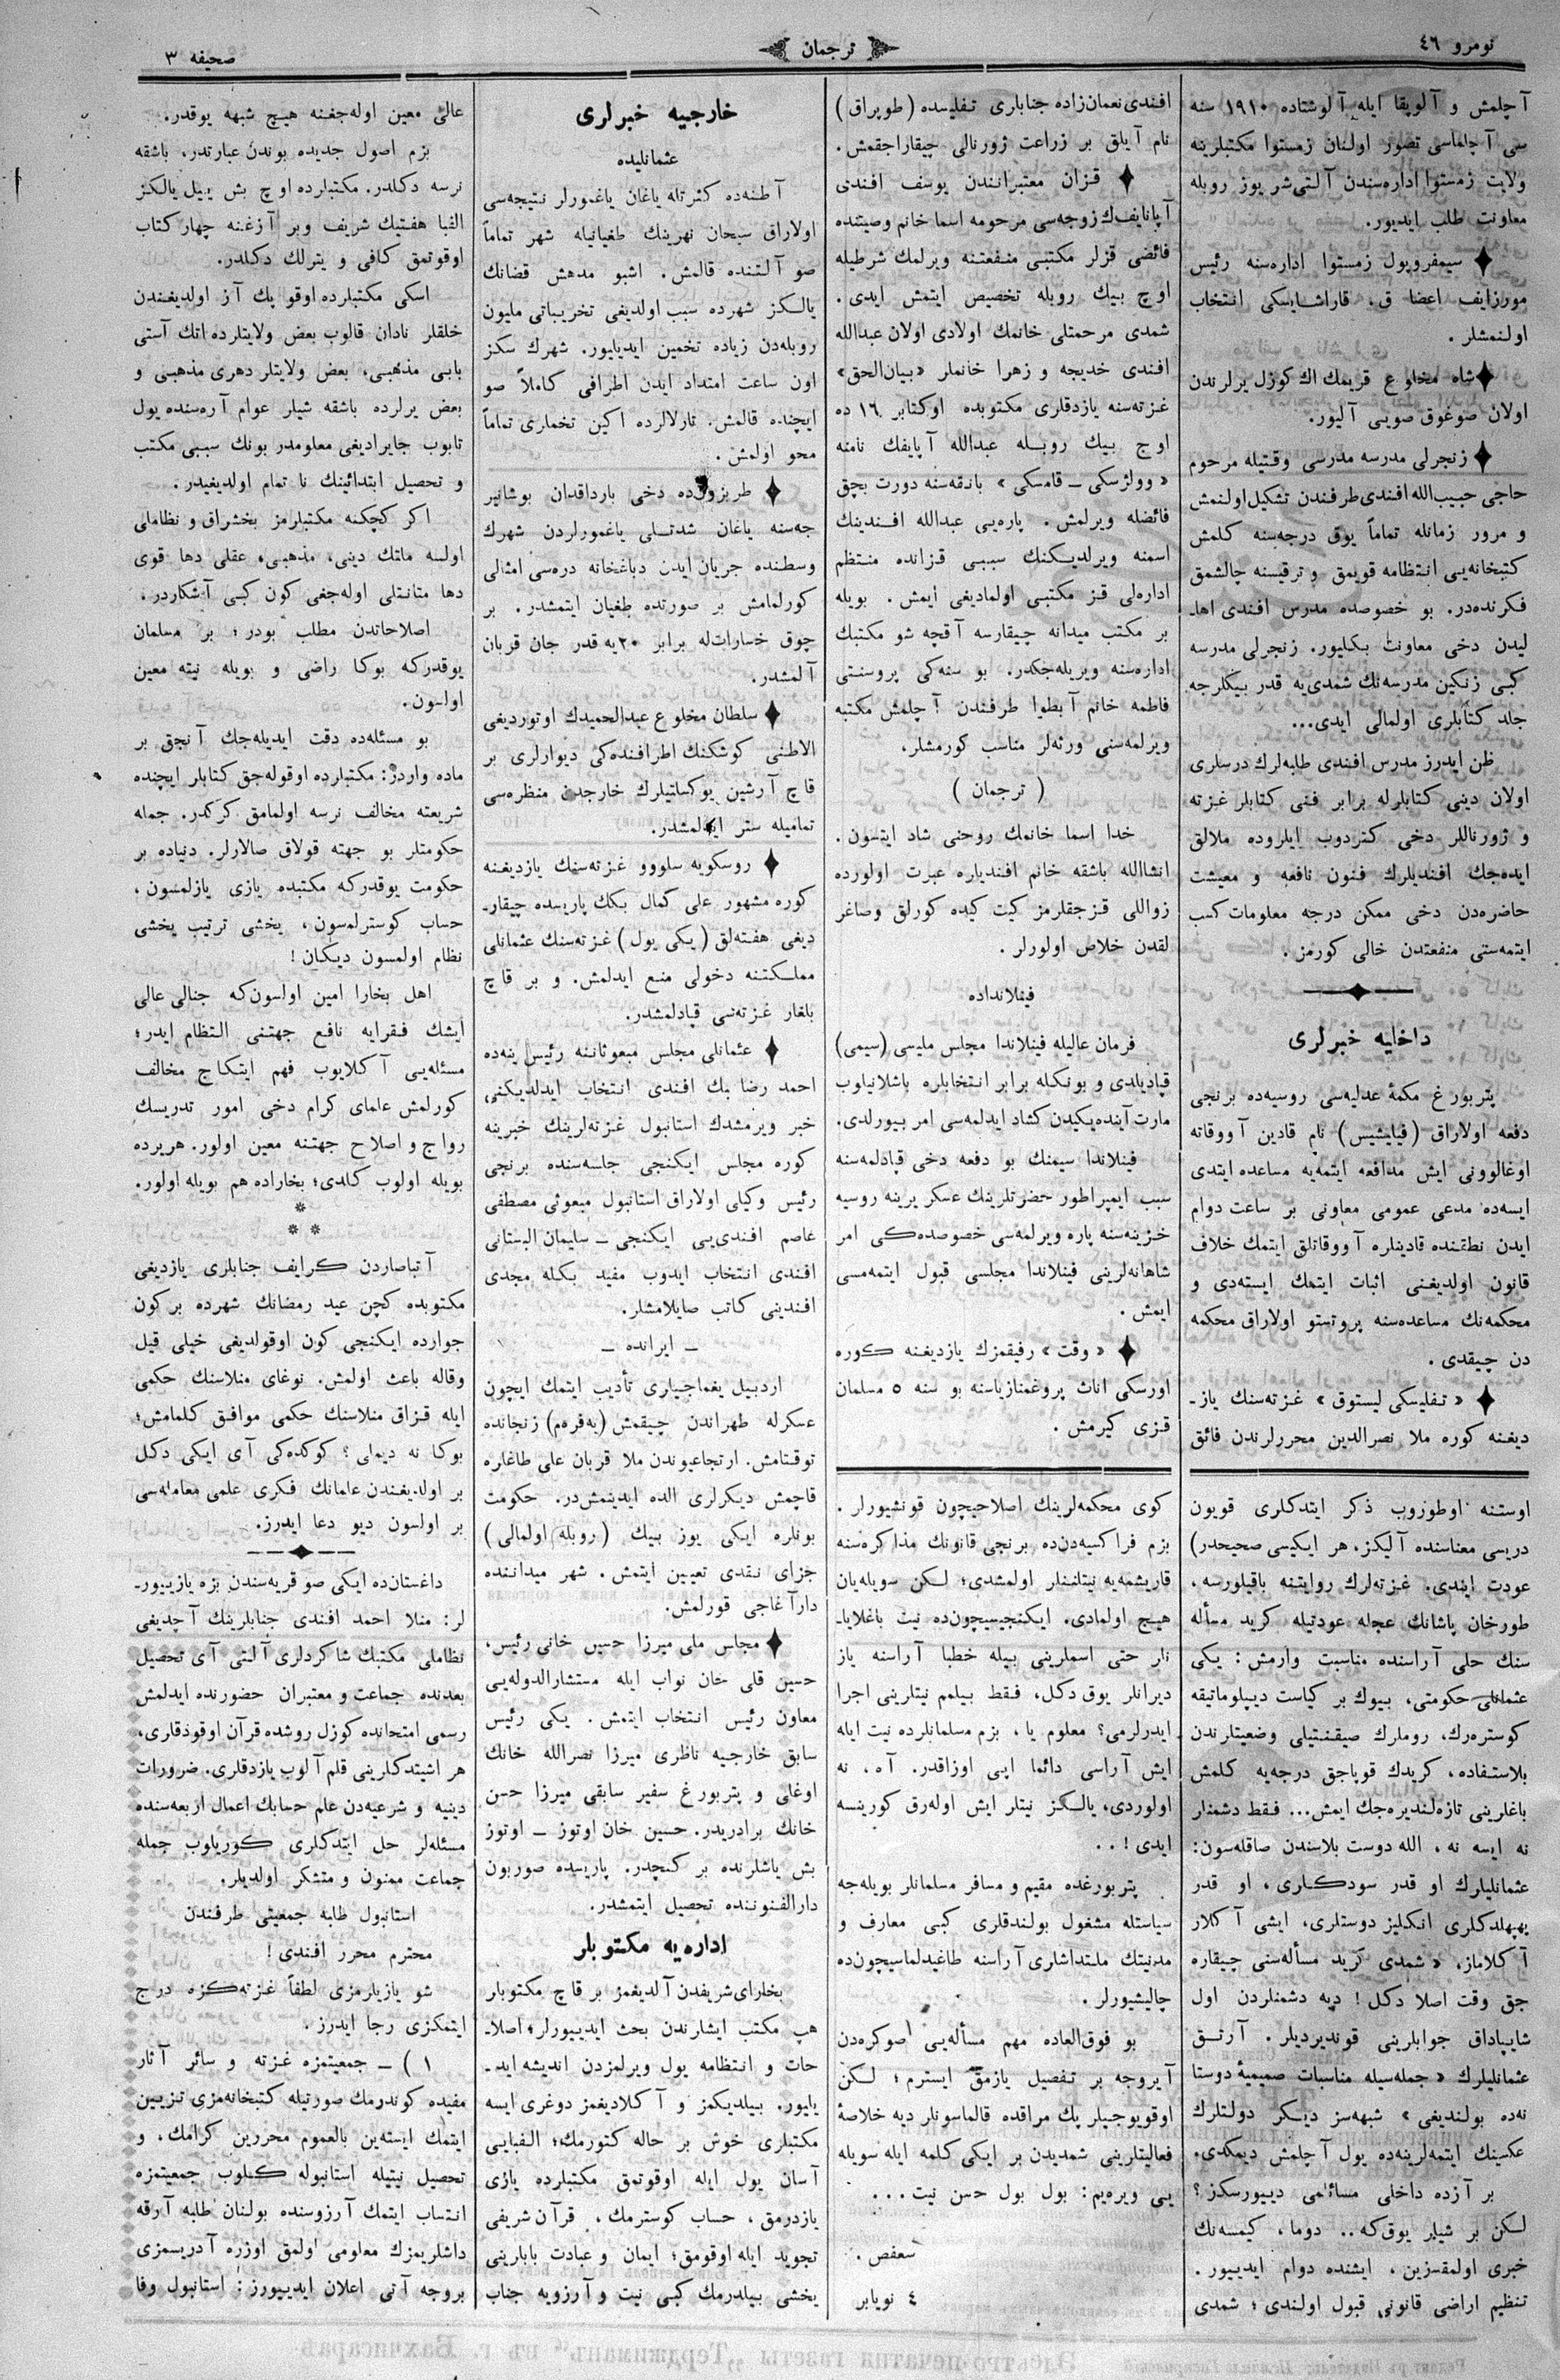 نومرو ٤٦
ترجمان
صحیفه ٣
آچلمش و آلوپقا ایله آلوشتاده ١٩١٠ سنه
سی آچلماسی تصور اولنان زمستوا مکتبلرینه
ولایت زمستوا اداره‌سندن آلتی‌شر یوز روبله
معاونت طلب ایدیور.
سیمفروپول زمستوا اداره‌سنه رئیس
مورزایف اعضا ق. قاراشایسکی انتخاب
اولنمشلر .
شاه مخلوع قریمك اك كوزل یرلرندن
اولان صوغوق صویی آلیور.
زنجرلی مدرسه مدرسی وقتیله مرحوم
حاجی حبیب‌الله افندی طرفندن تشکیل اولنمش
و مرور زمانله تماماً یوق درجه‌سنه کلمش
کتبخانه‌یی انتظامه قویمق و ترقیسنه چالشمق
فکرنده‌در. بو خصوصده مدرس افندی اهاـ
لیدن دخی معاونت بکلیور. زنجرلی مدرسه
کبی زنکین مدرسه‌نك شمدی‌یه قدر بیکلرجه
جلد کتابلری اولمالی ایدی...
ظن ایدرز مدرس افندی طلبه‌لرك درسلری
اولان دینی کتابلرله برابر فنی کتابلر غزته
و ژورناللر دخی کتردوب ایلروده ملالق
ایده‌جك افندیلرك فنون نافعه و معیشت
حاضره‌دن دخی ممکن درجه معلومات کسب
ایتمه‌ستی منفعتدن خالی کورمز .
داخلیه خبرلری
پتربورغ مکمهٔ عدلیه‌سی روسیه‌ده برنجی
دفعه اولاراق (فیایشیس) نام قادین آووقاته
اوغالوونی ایش مدافعه ایتمه‌یه مساعده ایتدی
ایسه‌ده مدعی عمومی معاونی بر ساعت دوام
ایدن نطقنده قادینلره آووقاتلق ایتمك خلاف
قانون اولدیغنی اثبات ایتمك ایسته‌دی و
محکمه‌نك مساعده‌سنه پروتستو اولاراق محکمه
دن چیقدی .
« تفلیسکی لیستوق » غزته‌سنك یازـ
دیغنه کوره ملا نصرالدین محررلرندن فائق
اوستنه اوطوروب ذکر ایتدکلری قویون
دریسی معناسنده آلیکز، هر ایکیسی صحیحدر)
عودت ایتدی. غزته‌لرك روایتنه باقیلورسه،
طورخان پاشانك عجله عودتیله کرید مسأله
سنك حلی آراسنده مناسبت وارمش : یکی
عثمانلی حکومتی، بیوك بر کیاست دیپلوماتیقه
کوستره‌رك، روملرك صیقنتیلی وضعیتلرندن
بلاستفاده، کریدك قوپاجق درجه‌یه کلمش
باغلرینی تازه‌لندیره‌جك ایمش... فقط دشمنلر
نه ایسه نه ، الله دوست بلاسندن صاقله‌سون:
عثمانلیلرك او قدر سودکلری، او قدر
یهپهلدکلری انکلیز دوستلری، ایشی آکلار
آکلاماز، « شمدی کرید مسأله‌سنی چیقاره
جق وقت اصلا دکل! دیه دشمنلردن اول
شاپپاداق جوابلرینی قوندیردیلر . آرتق
عثمانلیلرك « جمله‌سیله مناسبات صمیمیهٔ دوستا
نه‌ده بولندیغی » شبهه‌سز دیکر دولتلرك
عکسینك ایتمه‌لرینه‌ده یول آچلمش دیمکدی.
بر آزده داخلی مسائلمی دییورسکز؟
لکن بر شیلر یوق که.. دوما، کیمسه‌نك
خبری اولمقسزین ، ایشنده دوام ایدییور.
تنظیم اراضی قانونی قبول اولندی؛ شمدی
افندی نعمان‌زاده جنابلری تفلیسده (طوپراق)
نام آیلق بر زراعت ژورنالی چیقاراجقمش.
قزان معتبرانندن یوسف افندی
آپانایف‌ك زوجه‌سی مرحومه اسما خانم وصیتنده
فائضی قزلر مکتبی منفعتنه ویرلمك شرطیله
اوچ بیك روبله تخصیص ایتمش ایدی.
شمدی مرحمتلی خانمك اولادی اولان عبدالله
افندی خدیجه و زهرا خانملر «بیان‌الحق»
غزته‌سنه یازدقلری مکتوبده اوکتابر ١٦ ده
اوچ بیك روبله عبدالله آپایفك نامنه
« وولژسکی – قامسکی » بانقه‌سنه دورت بچق
فائضله ویرلمش . پاره‌یی عبدالله افندینك
اسمنه ویرلدیکنك سببی قزانده منتظم
اداره‌لی قز مکتبی اولمادیغی ایمش . بویله
بر مکتب میدانه چیقارسه آقچه شو مکتبك
اداره‌سنه ویریله‌جکدر. بو سنه‌کی پروسنتی
فاطمه خانم آبطوا طرفندن آچلمش مکتبه
ویرلمه‌سنی ورثه‌لر مناسب کورمشلر،
( ترجمان )
خدا اسما خانمك روحنی شاد ایتسون .
انشاالله باشقه خانم افندیلره عبرت اولورده
زواللی قزجقلرمز کیت کیده کورلق وصاغر
لقدن خلاص اولورلر .
فینلانداده
فرمان عالیله فینلاندا مجلس ملیسی (سیمی)
قپادیلدی و بونکله برابر انتخابلره باشلانیلوب
مارت آینده‌یکیدن کشاد ایدلمه‌سی امر بیورلدی.
فینلاندا سیمنك بو دفعه دخی قپادلمه‌سنه
سبب ایمپراطور حضرتلرینك عسکر یرینه روسیه
خزینه‌سنه پاره ویرلمه‌سی خصوصده‌کی امر
شاهانه‌لرینی فینلاندا مجلسی قبول ایتمه‌مسی
ایمش .
« وقت » رفیقمزك یازدیغنه کوره
اورسکی اناث پروغمنازیاسنه بو سنه ٥ مسلمان
قزی کیرمش .
کوی محکمه‌لرینك اصلاحیچون قونشیورلر .
بزم فراکسیه‌دن‌ده برنجی قانونك مذاکره‌سنه
قاریشمه‌یه نیتلنلر اولمشدی؛ لکن سویله‌یان
هیچ اولمادی. ایکنجیسیچون‌ده نیت باغلایاـ
نلر حتی اسملرینی بیله خطبا آراسنه یاز
دیرانلر یوق دکل، فقط بیلمم نیتلرینی اجرا
ایدرلرمی؟ معلوم یا، بزم مسلمانلرده نیت ایله
ایش آراسی دائما اپی اوزاقدر. آه، نه
اولوردی، یالکز نیتلر ایش اوله‌رق کورینسه
ایدی ! ..
پتربورغده مقیم و مسافر مسلمانلر بویله‌جه
سیاستله مشغول بولندقلری کبی معارف و
مدنیتك ملتداشلری آراسنه طاغیدلماسیچون‌ده
چالیشیورلر .
بو فوق‌العاده مهم مسأله‌یی صوکره‌دن
آیروجه بر تفصیل یازمق ایسترم ؛ لکن
اوقویوجیلر پك مراقده قالماسونلر دیه خلاصهٔ
فعالیتلرینی شمدیدن بر ایکی کلمه ایله سویله
یی ویره‌یم: بول بول حسن نیت...
سعفص .
٤ نویابر
خارجیه خبرلری
عثمانلیده
آطنه‌ده کثرتله یاغان یاغمورلر نتیجه‌سی
اولاراق سیحان نهرینك طغیانیله شهر تماماً
صو آلتنده قالمش. اشبو مدهش قضانك
یالکز شهرده سبب اولدیغی تخریباتی ملیون
روبله‌دن زیاده تخمین ایدیلیور. شهرك سکز
اون ساعت امتداد ایدن اطرافی کاملاً صو
ایچنده قالمش. تارلالرده اکین تخملری تماماً
محو اولمش .
طربزون‌ده دخی بارداقدان بوشانیر
جه‌سنه یاغان شدتلی یاغمورلردن شهرك
وسطنده جریان ایدن دباغخانه دره‌سی امثالی
کورلمامش بر صورتده طغیان ایتمشدر. بر
چوق خسارات‌له برابر ٢٠یه قدر جان قربان
آلمشدر.
سلطان مخلوع عبدالحمیدك اوتوردیغی
الاطنی کوشکنك اطرافنده‌کی دیوارلری بر
قاچ آرشین یوکسلتیلرك خارجدن منظره‌سی
تمامیله ستر ایدلمشدر.
روسکویه سلووو غزته‌سنك یازدیغنه
کوره مشهور علی کمال بکك پاریسده چیقارـ
دیغی هفته‌لق (یکی یول) غزته‌سنك عثمانلی
مملکتنه دخولی منع ایدلمش. و بر قاچ
بلغار غزته‌سی قپادلمشدر.
عثمانلی مجلس مبعوثاننه رئیس ینه‌ده
احمد رضا بك افندی انتخاب ایدلدیکنی
خبر ویرمشدك استانبول غزته‌لرینك خبرینه
کوره مجلس ایکنجی جلسه‌سنده برنجی
رئیس وکیلی اولاراق استانبول مبعوثی مصطفی
عاصم افندی‌یی ایکنجی – سلیمان البستانی
افندی انتخاب ایدوب مفید بکله مجدی
افندینی کاتب صایلامشلر.
– ایرانده –
اردبیل یغماجیلری تأدیب ایتمك ایچون
عسکرله طهراندن چیقمش (یه‌فره‌م) زنجانده
توقتامش. ارتجاعیوندن ملا قربان علی طاغلره
قاچمش دیکرلری الده ایدینمش‌در. حکومت
بونلره ایکی یوز بیك (روبله اولمالی)
جزای نقدی تعیین ایتمش. شهر میداننده
دارآغاجی قورلمش.
مجلس ملی میرزا حسین خانی رئیس،
حسین قلی خان نواب ایله مستشارالدوله‌یی
معاون رئیس انتخاب ایتمش. یکی رئیس
سابق خارجیه ناظری میرزا نصرالله خانك
اوغلی و پتربورغ سفیر سابقی میرزا حسن
خانك برادریدر. حسین خان اوتوز – اوتوز
بش یاشلرنده بر کنچدر. پاریسده صوربون
دارالفنوننده تحصیل ایتمشدر.
اداره‌یه مکتوبلر
بخارای‌شریفدن آلدیغمز بر قاچ مکتوبلر
هپ مکتب ایشلرندن بحث ایدییورلر؛ اصلاـ
حات و انتظامه یول ویرلمزدن اندیشه ایدـ
یلیور. بیلدیکمز و آکلادیغمز دوغری ایسه
مکتبلری خوش بر حاله کتورمك؛ الفبایی
آسان یول ایله اوقوتمق مکتبلرده یازی
یازدرمق، حساب کوسترمك، قرآن شریفی
تجوید ایله اوقومق؛ ایمان و عبادت بابلرینی
یخشی بیلدرمك کبی نیت و آرزویه جناب
عالی معین اوله‌جغنه هیچ شبهه یوقدر.
بزم اصول جدیده بوندن عبارتدر، باشقه
نرسه دکلدر. مکتبلرده اوچ بش ییل یالکز
الفبا هفتیك شریف وبر آزغنه چهار کتاب
اوقوتمق کافی و یترلك دکلدر.
اسکی مکتبلرده اوقو پك آز اولدیغندن
خلقلر نادان قالوب بعض ولایتلرده اتك آستی
بابی مذهبی، بعض ولایتلر دهری مذهبی و
بعض یرلرده باشقه شیلر عوام آره‌سنده یول
تابوب جایرادیغی معلومدر بونك سببی مکتب
و تحصیل ابتدائینك نا تمام اولدیغیدر.
اکر کچکنه مکتبلرمز یخشیراق و نظاملی
اولسه ملتك دینی، مذهبی، عقلی دها قوی
دها متانتلی اوله‌جغی کون کبی آشکاردر.
اصلاحاتدن مطلب بودر؛ بر مسلمان
یوقدرکه بوکا راضی و بویله نیته معین
اولسون.
بو مسئله‌ده دقت ایدیله‌جك آنجق بر
ماده واردر: مکتبلرده اوقوله‌جق کتابلر ایچنده
شریعته مخالف نرسه اولمامق کرکدر. جمله
حکومتلر بو جهته قولاق صالارلر. دنیاده بر
حکومت یوقدرکه مکتبده یازی یازلمسون،
حساب کوسترلمسون، یخشی ترتیب یخشی
نظام اولمسون دیکان!
اهل بخارا امین اولسون‌که جنالی عالی
ایشك فقرایه نافع جهتنی التظام ایدر؛
مسئله‌یی آکلایوب فهم ایتکاج مخالف
کورلمش علمای کرام دخی امور تدریسك
رواج و اصلاح جهتنه معین اولور. هریرده
بویله اولوب کلدی؛ بخاراده هم بویله اولور.
*
* *
آتباصاردن کرایف جنابلری یازدیغی
مکتوبده کچن عید رمضانك شهرده برکون
جوارده ایکنجی کون اوقولدیغی خیلی قیل
وقاله باعث اولمش. نوغای منلاسنك حکمی
ایله قزاق منلاسنك حکمی موافق کلمامش؛
بوکا نه دیملی؟ کوکده‌کی آی ایکی دکل
بر اولدیغندن علمانك فکری علمی معامله‌سی
بر اولسون دیو دعا ایدرز.
داغستان‌ده ایکی صو قریه‌سندن بزه یازییورـ
لر: منلا احمد افندی جنابلرینك آچدیغی
نظاملی مکتبك شاکردلری آلتی آی تحصیل
بعدنده جماعت و معتبران حضورنده ایدلمش
رسمی امتحانده کوزل روشده قرآن اوقودقلری،
هر اشیتدکلرینی قلم آلوب یازدقلری. ضرورات
دینیه و شرعیه‌دن علم حسابك اعمال اربعه‌سنده
مسئله‌لر حل ایتدکلری کوریلوب جمله
جماعت ممنون و متشکر اولدیلر.
استانبول طلبه جمعیتی طرفندن
محترم محرر افندی!
شو یازیلرمزی لطفاً غزته‌کزه درج
ایتمکزی رجا ایدرز.
١ ) – جمعیتمزه غزته و سائر آثار
مفیده کوندرمك صورتیله کتبخانه‌مزی تزیین
ایتمك ایسته‌ین بالعموم محررین کرامك، و
تحصیل نیتیله استانبوله کلوب جمعیتمزه
انتساب ایتمك آرزوسنده بولنان طلبه آرقه
داشلریمزك معلومی اولمق اوزره آدریسمزی
بروجه آتی اعلان ایدییورز: استانبول وفا